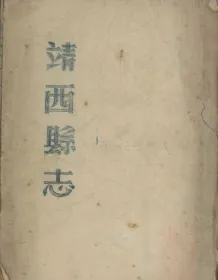 靖西縣志